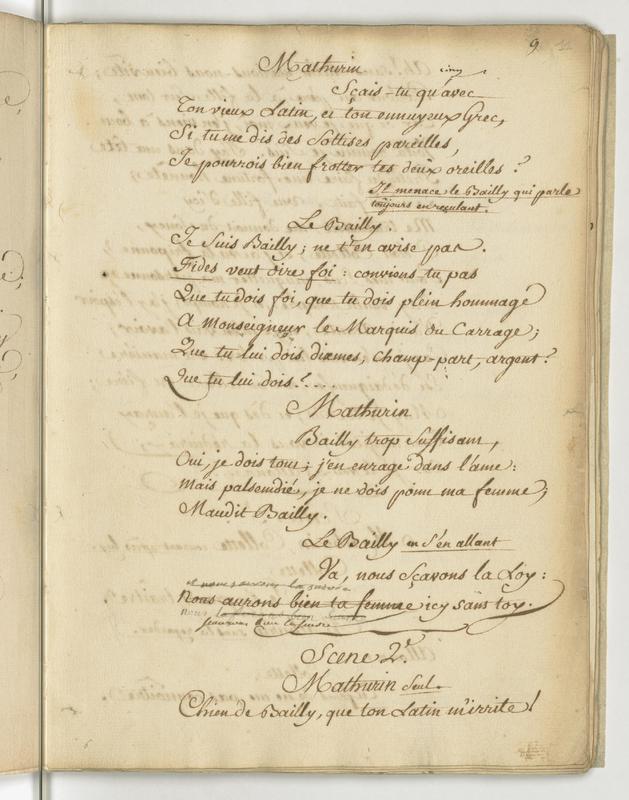 9
Mathurin
Sçais-tu qu'avec
Ton vieux Latin, et ton ennuyeux Grec,
Si tu me dis des Sottises pareilles,
Je pourrois bien frotter tes deux oreilles ?
Il menace le Bailly qui parle
toujours en reculant.
Le Bailly.
Je Suis Bailly ; ne t'en avise pas.
Fides veut dire foi : conviens tu pas
Que tu dois foi, que tu dois plein hommage
A Monseigneur le Marquis du Carrage ;
Que tu lui dois dixmes, champ-part, argent ?
Que tu lui dois ?....
Mathurin
Bailly trop Suffisant,
Oui, je dois tout ; j'en enrage dans l'ame :
Mais palsemdié, je ne dois point ma femme ;
Maudit Bailly.
Le Bailly en s'en allant
Va, nous Sçavons la Loy :
et nous aurons la
Nous aurons bien ta femme icy sans toy.
Scene 2e.
Mathurin Seul.
Chien de Bailly, que ton Latin m'irrite !